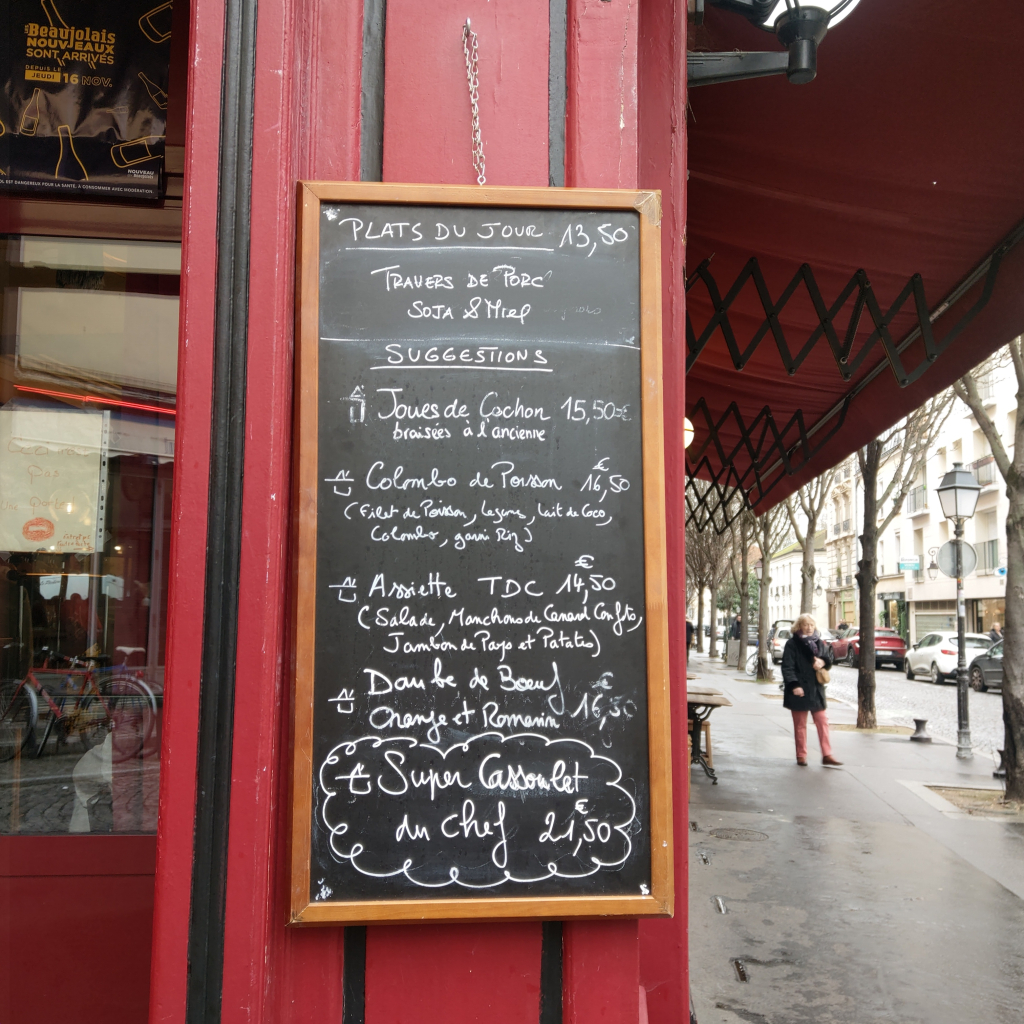 LES Beaujolais
NOUVEAUX
SONT ARRIVÉS
DEPUIS LE
JEUDI 16 NOV.
NOUVEAU
EST DANGEREUX POUR LA SANTÉ, À CONSOMMER AVEC MODÉRATION.
PLATS DU JOUR 13,50
TRAVERS DE PORC
SOJA & Miel
SUGGESTIONS
Joues de Cochon 15,50€
braisées à l'ancienne
Colombo de Poisson 16,50 €
(Filet de Poisson, legums, lait de Coco,
Colombo, garni Riz)
Assiette TDC 14,50 €
(Salade, Manchons de Canard Confits,
Jambon de Pays et Patates)
Daube de Boeuf
Orange et Romarin 16,50 €
Super Cassoulet
du chef 21,50 €